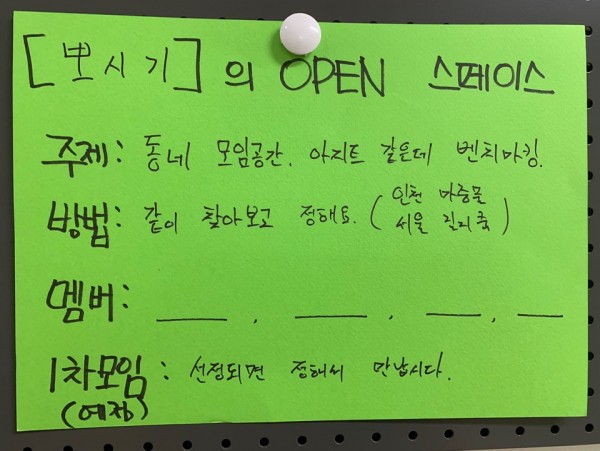 [뽀시기]의 OPEN 스페이스
주제: 동네 모임공간. 아지트 같은데 벤치마킹.
방법: 같이 찾아보고 정해요. (인천 마중물
서울 길리쿡)
멤버: ____, ____, ____, ____
1차모임: 선정되면 정해서 만납시다.
(예정)